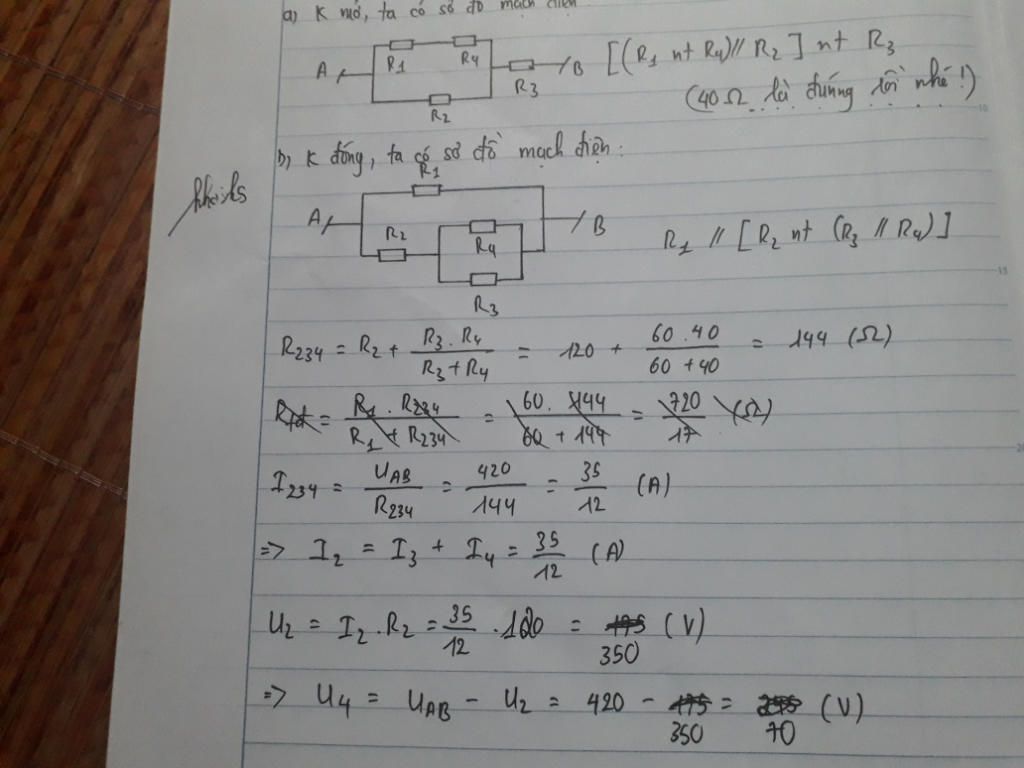 a) K mở, ta có sơ đồ mạch điện
A R1 R4 R3 B R2 [(R1 nt R4) // R2] nt R3
(40Ω là đúng rồi nhé!)
b) K đóng, ta có sơ đồ mạch điện:
R1
A B
R2 R4
R3
R1 // [R2 nt (R3 // R4)]
R234 = R2 + R3 . R4 / R3 + R4 = 120 + 60 . 40 / 60 + 40 = 144 (Ω)
Rtđ = R1 . R234 / R1 + R234 = 60 . 144 / 60 + 144 = 720 / 17 (Ω)
I234 = UAB / R234 = 420 / 144 = 35 / 12 (A)
=> I2 = I3 + I4 = 35 / 12 (A)
U2 = I2 . R2 = 35 / 12 . 120 = 175 (V)
350
=> U4 = UAB - U2 = 420 - 175 = 245 (V)
350 70
10
15
20